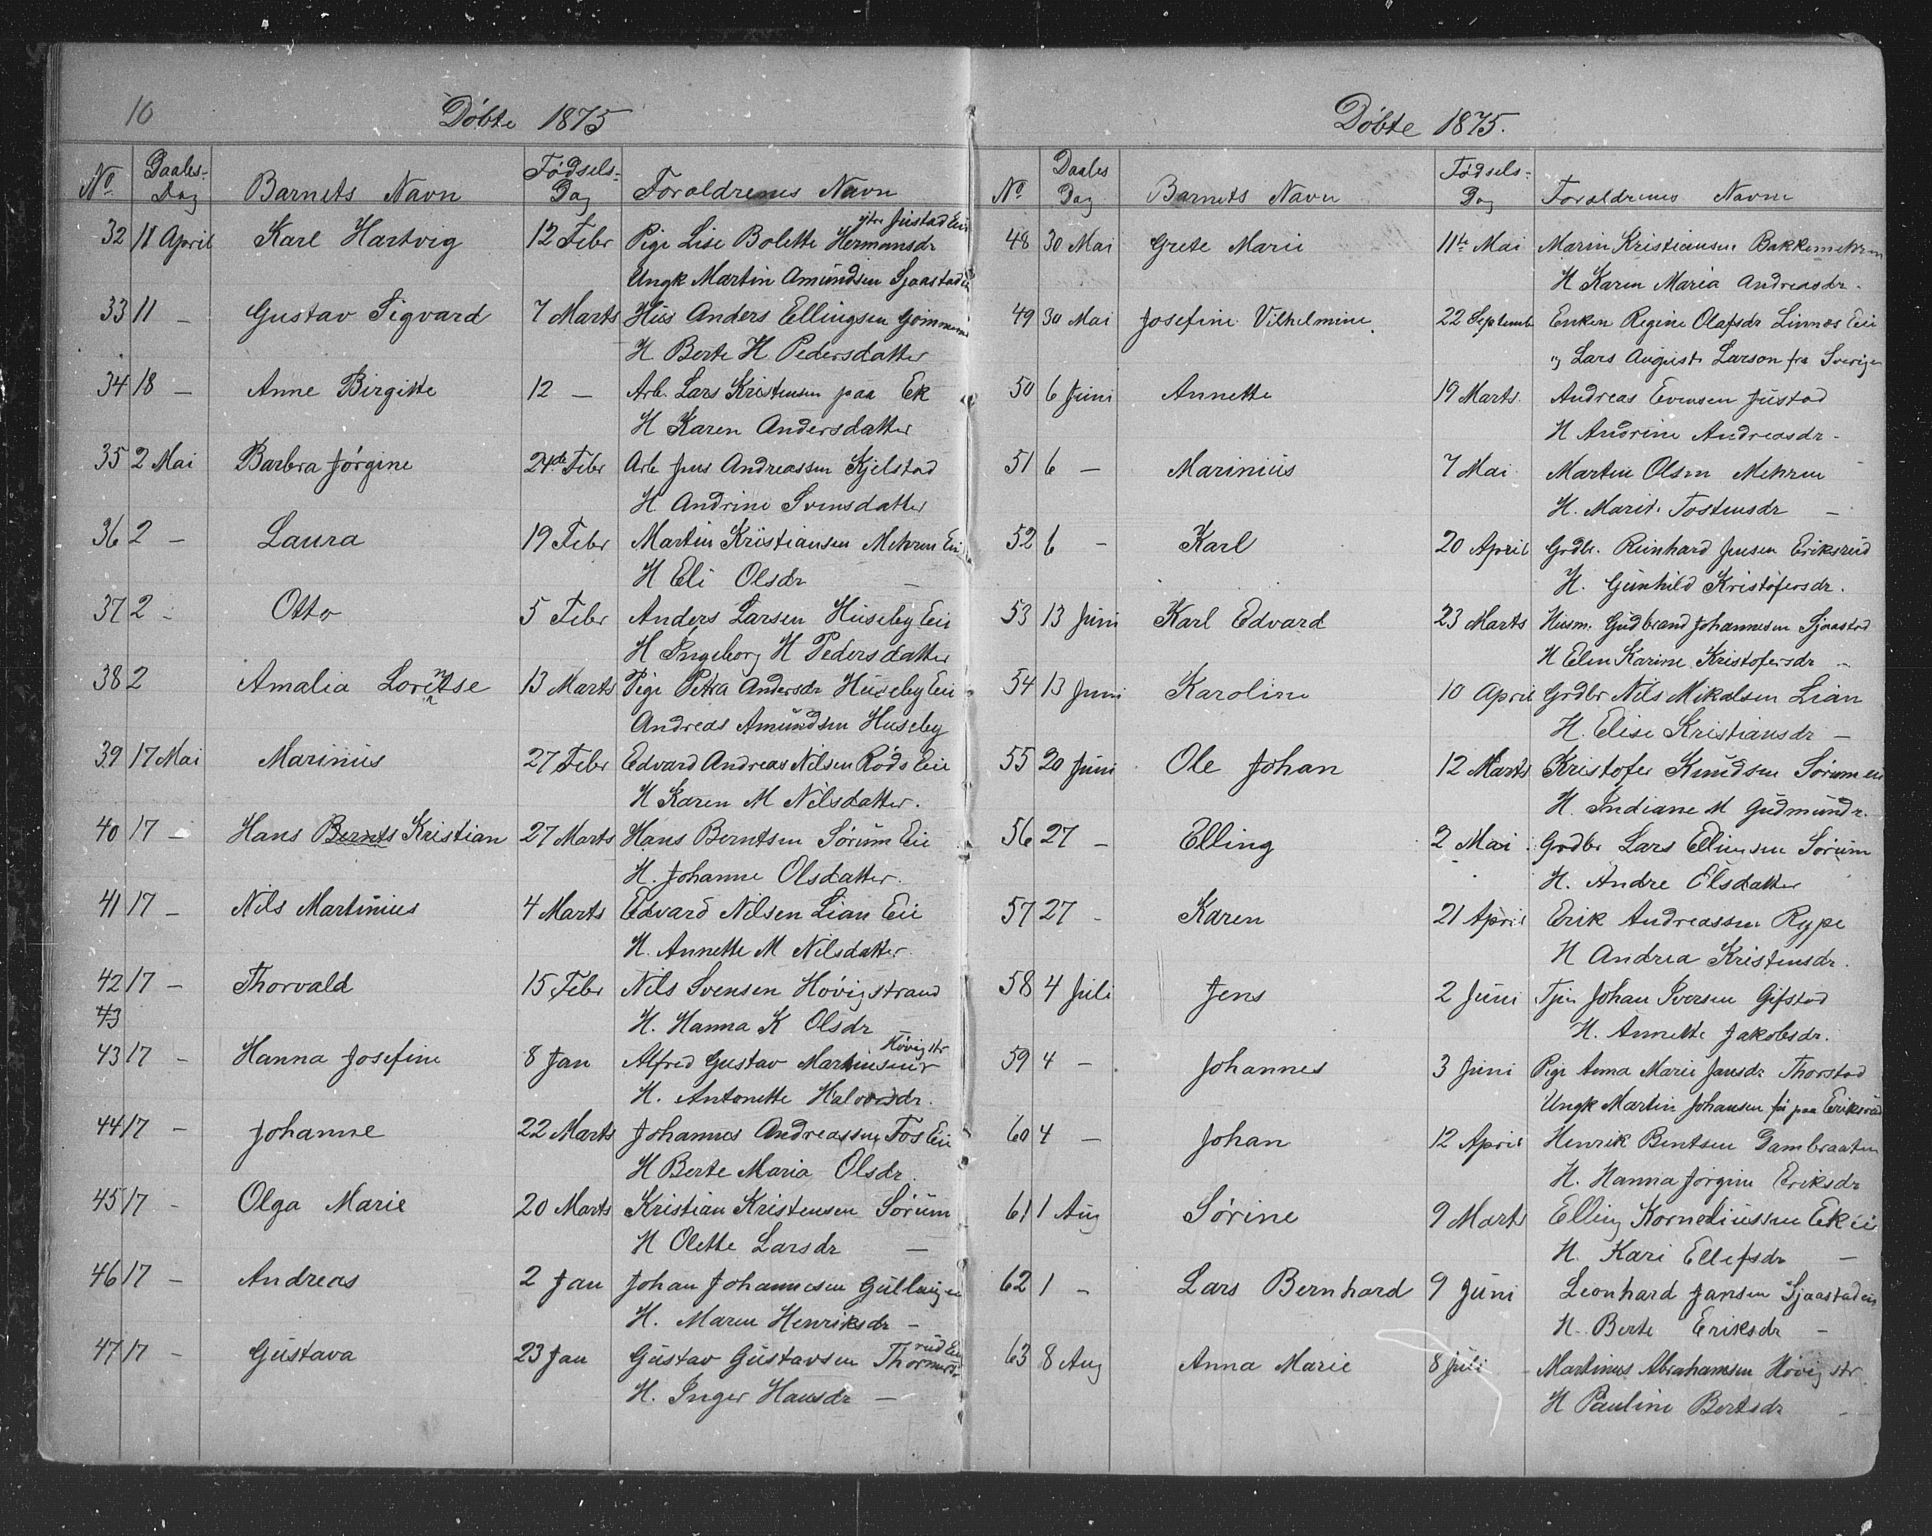 10
Döbte 1875
No Daabs-Dag Barnets Navn Födsels-Dag Foraldrenes Navn
32 18 April Karl Hartvig 12 Febr Pige Lise Bolette Hermansdr ytre Justad Eie
Ungk Martin Amundsen Sjaastad
33 11 – Gustav Sigvard 7 Marts Hus Anders Ellingsen
H Berte H Pedersdatter
34 18 – Anne Birgitte 12 – Arb. Lars Kristensen paa Ek
H Karen Andersdatter
35 2 Mai Barbra Jörgine 24de Febr Arb Jens Andreassen Kjelstad
H Andrine Svensdatter
36 2 – Laura 19 Febr Martin Kristiansen Mehren Eie
H Eli Olsdr –
37 2 – Otto 5 Febr Anders Larsen Huseby Eie
H Ingeborg H Pedersdatter
38 2 Amalia Lorentse 13 Marts Pige Petra Andersdr Huseby Eie
Andreas Amundsen Huseby
39 17 Mai Marinius 27 Febr Edvard Andreas Nilsen Röds Eie
H Karen M Nilsdatter.
40 17 – Hans Bernts Kristian 27 Marts Hans Berntsen Sörum Eie
H. Johanne Olsdatter.
41 17 – Nils Martinius 4 Marts Edvard Nilsen Lian Eie
H. Annette M Nilsdatter.
42 17 – Thorvald 15 Febr Nils Svensen Hövigstrand
43 H. Hanna K Olsdr
43 17 – Hanna Josefine 8 Jan Alfred Gustav Martinsen Hövigstr
H. Antonette Halvorsdr.
44 17 – Johanne 22 Marts Johannes Andreassen Fos Eie
H Berte Maria Olsdr.
45 17 – Olga Marie 20 Marts Kristian Kristensen Sörum
H Olette Larsdr –
46 17 – Andreas 2 Jan Johan Johannesen Gullaug
H. Maren Henriksdr –
47 17 – Gustava 23 Jan Gustav Gustavsen
H. Inger Hansdr –
Döbte 1875.
No Daabs Dag Barnets Navn Födsels-Dag Foraldrenes Navne
48 30 Mai Grete Marie 11te Mai Marin Kristiansen Bakkemehren
H Karen Maria Andreasdr.
49 30 Mai Josefine Vilhelmine 22 Septemb Enken Regine Olafsdr Linnes Eie
og Lars August Larson fra Sverige
50 6 Juni Annette 19 Marts Andreas Evensen Justad
H Andrine Andreasdr.
51 6 – Marinius 7 Mai Martin Olsen Mehren –
H. Marit Tostensdr –
52 6 – Karl 20 April Grdbr. Reinhard Jensen Eriksrud
H. Gunhild Kristofersdr.
53 13 Juni Karl Edvard 23 Marts Husm. Gudbrand Johannesen Sjaastad
H Elen Karine Kristofersdr –
54 13 Juni Karoline 10 April Grdbr Nils Mikalsen Lian
H. Elise Kristiansdr –
55 20 Juni Ole Johan 12 Marts Kristofer Knudsen Sörum eie
H. Indiane M Gudmundr.
56 27 – Elling 2 Mai Grdbr Lars Ellingsen Sörum
H. Andre Elsdatter
57 27 – Karen 21 April Erik Andreassen Rype
H Andrea Kristensdr.
58 4 Juli Jens 2 Juni Tjen Johan Iversen Gifstad
H. Annette Jakobsdr.
59 4 – Johannes 3 Juni Pige Anna Marie Jansdr Thorstad
Ungk Martin Johansen paa Eriksrud
60 4 – Johan 12 April Henrik Bentsen Dambraaten
H. Hanna Jörgine Eriksdr
61 1 Aug Sörine 9 Marts Elling Korneliussen Ek eie
H. Kari Ellefsdr –
62 1 – Lars Bernhard 9 Juni Leonhard Jansen Sjaastad eie
H. Berte Eriksdr –
63 8 Aug Anna Marie 8 Juli – Martinus Abrahamsen Hövigstr
H Pauline Bertsdr –